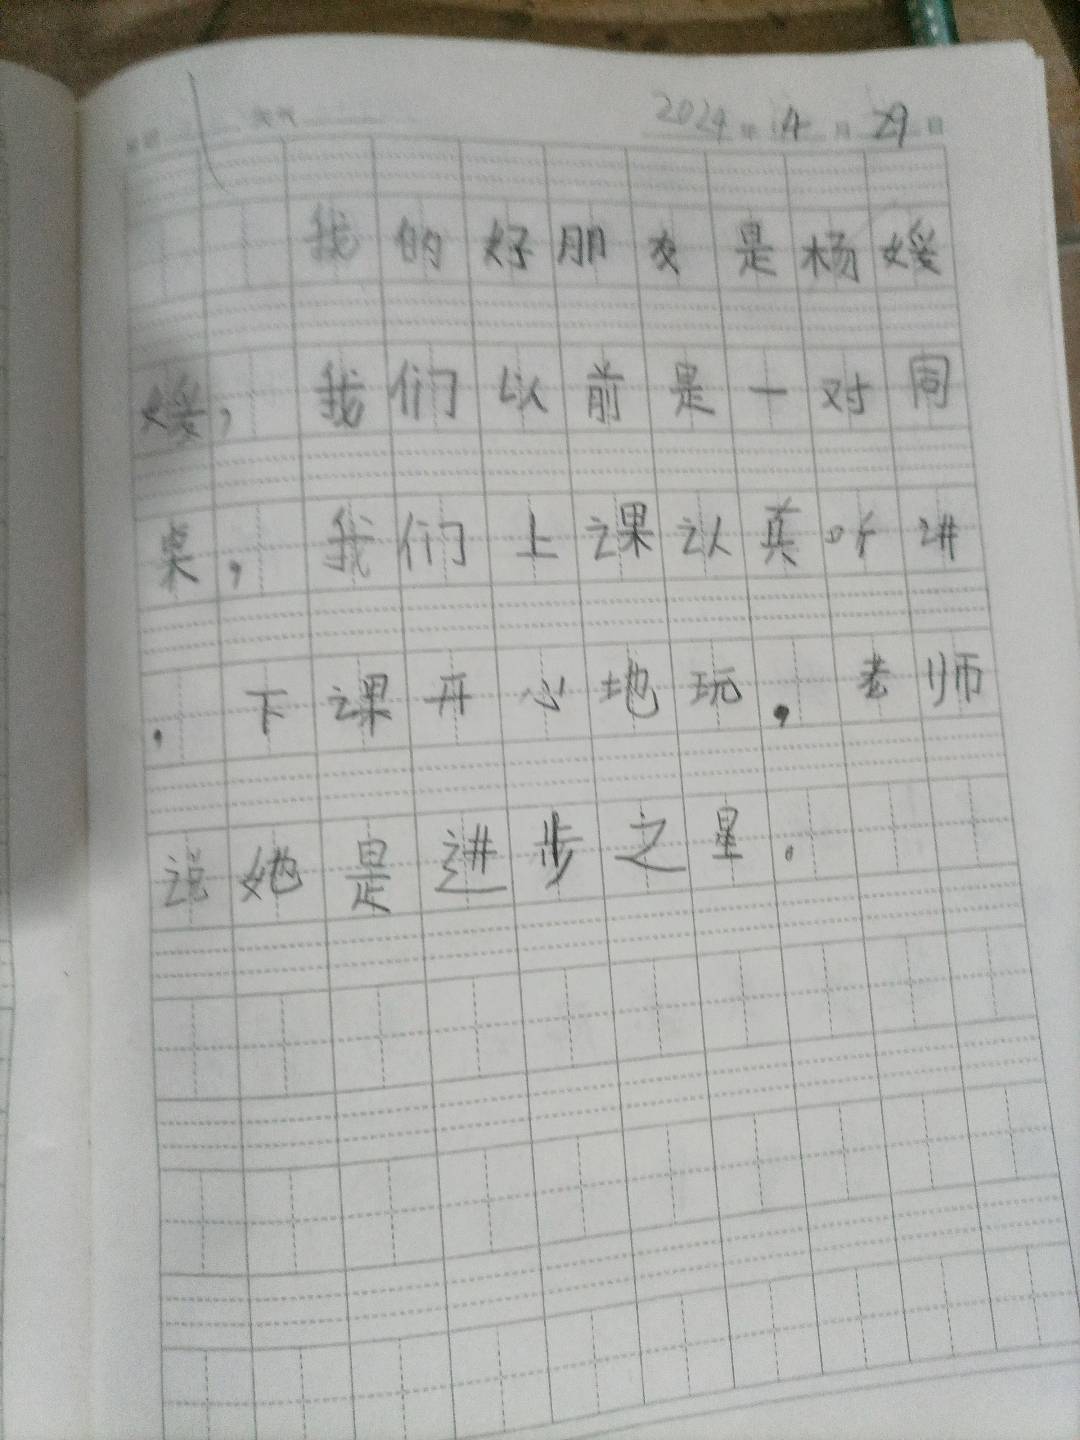 2024年4月29日
我的好朋友是杨媛
媛，我们以前是一对同
桌，我们上课认真听讲
，下课开心地玩，老师
说她是进步之星。